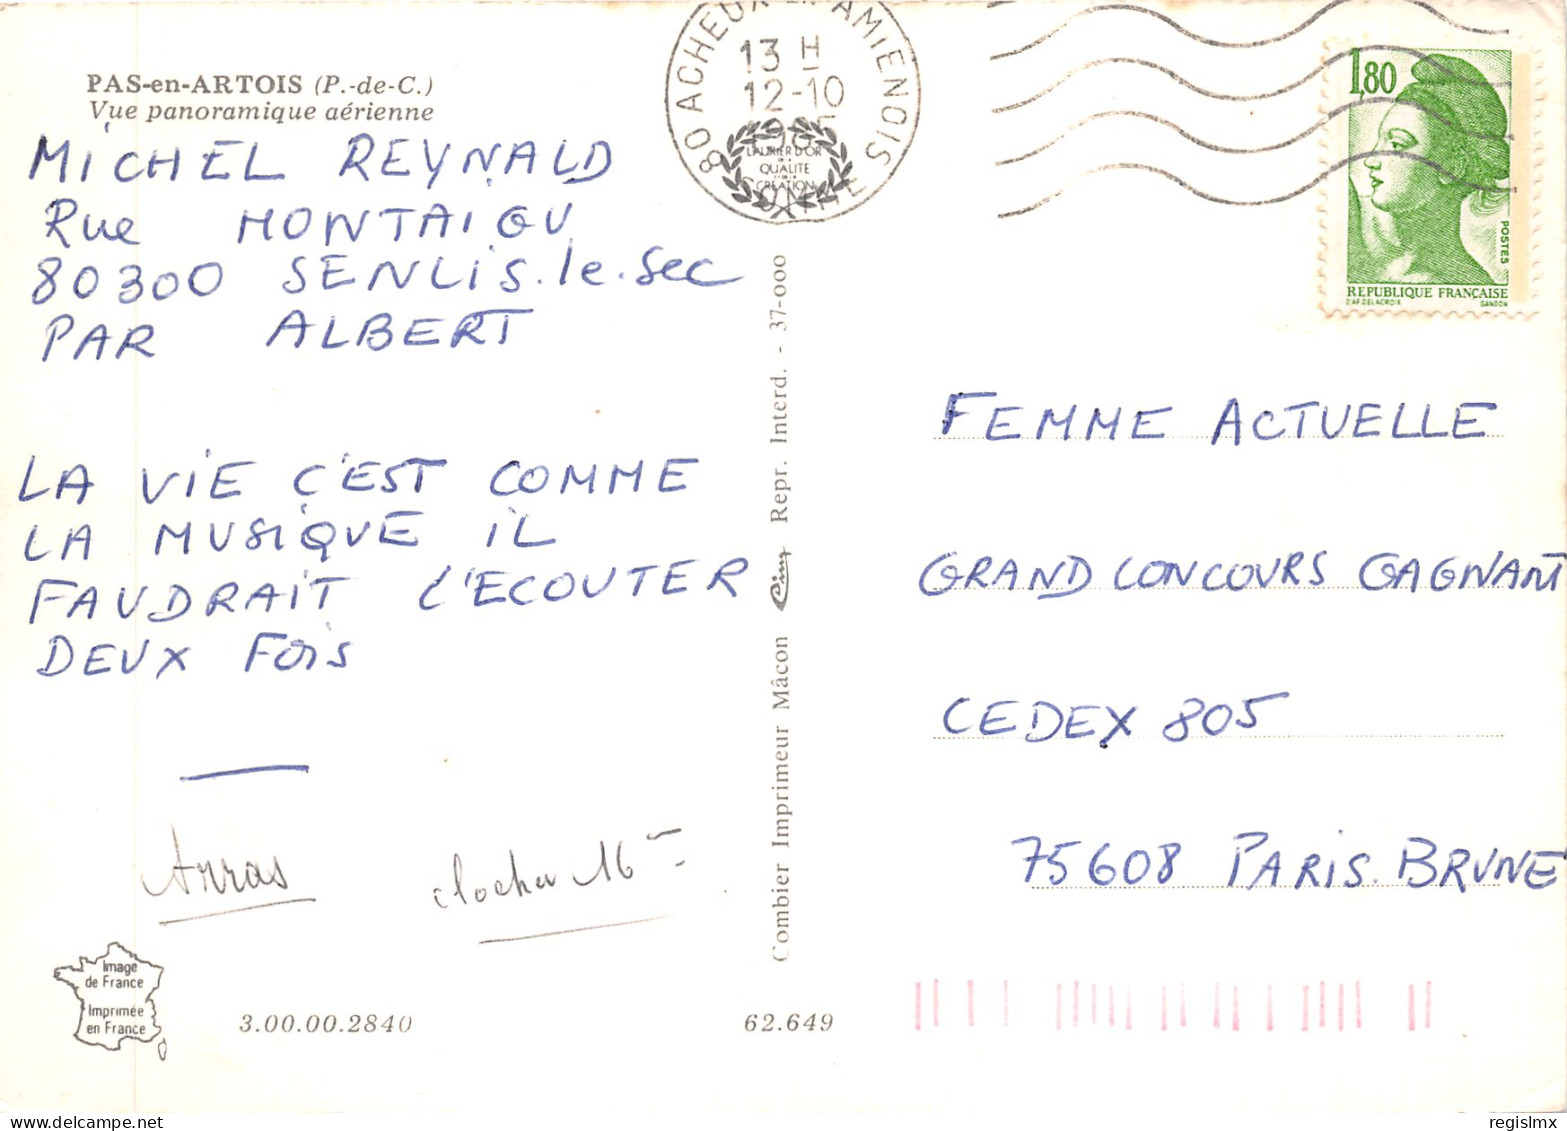 PAS-en-ARTOIS (P.-de-C.)
Vue panoramique aérienne
MICHEL REYNALD
Rue MONTAIGU
80300 SENLIS.le.Sec
PAR ALBERT
LA VIE C'EST COMME
LA MUSIQUE IL
FAUDRAIT L'ECOUTER
DEUX FOIS
Arras
clocher 16
Image
de France
Imprimée
en France
3.00.00.2840
62.649
Combier Imprimeur Mâcon Cim Repr. Interd. - 37-000
80 ACHEUX EN AMIENOIS
13 H
12-10
LAURIER D'OR
DE LA
QUALITE
ET DE LA
CREATION
SOMME
1,80
POSTES
REPUBLIQUE FRANÇAISE
D'AP. DELACROIX GANDON
FEMME ACTUELLE
GRAND CONCOURS GAGNANT
CEDEX 805
75608 PARIS.BRUNE
regislmx